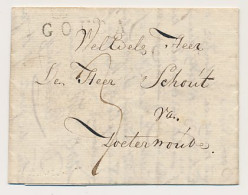 GO
WelEdele Heer
De Heer Schout
van
Zoeterwoude.